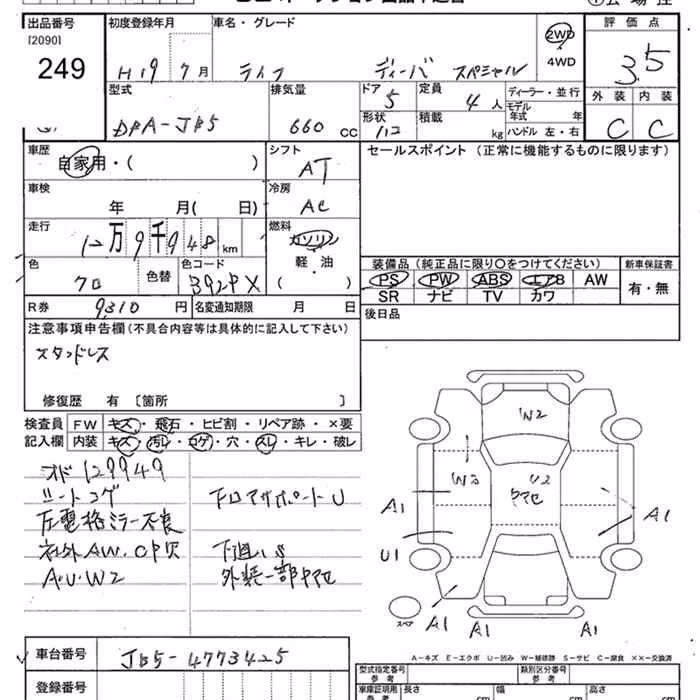 出品番号 [2090] 249
初度登録年月 H19 7月
車名・グレード ライフ ディーバ スペシャル
2WD・4WD
評価点 3.5
外装 内装
C C
型式 DBA-JB5
排気量 660 cc
ドア 5
定員 4人
ディーラー・並行
形状 ハコ
積載 kg
モデル年式 年
ハンドル 左・右
車歴 自家用・( )
シフト AT
セールスポイント(正常に機能するものに限ります)
車検 年 月( 日)
冷房 AC
走行 12万9千948km
燃料 ガソリン 軽・油 ( )
色 クロ 色替
色コード B92PX
装備品(純正品に限り○をつけてください)
新車保証書
PS PW ABS エアB AW
有・無
SR ナビ TV カワ
R券 9310円
名変通知期限 月 日
後日品
注意事項申告欄(不具合内容等は具体的に記入して下さい)
スタッドレス
修復歴 有 〔箇所 〕
検査員 FW キズ・飛石・ヒビ割・リペア跡・×要
記入欄 内装 キズ・汚レ・コゲ・穴・スレ・キレ・破レ
オド129949
シートコゲ
ドロアサポートU
左電格ミラー不良
社外AW.CP欠
下廻りS
A・U・W2
外装一部ヤセ
W2
W2
U2
ヤセ
A1
A1
U1
A1
A1
A1
スペア
A-キズ E-エクボ U-凹み W-補修跡 S-サビ C-腐食 ××-交換済
車台番号 JB5-4773425
型式指定番号 参考
類別区分番号 参考
登録番号
車庫証明用 参考 長さ cm 幅 cm 高さ cm